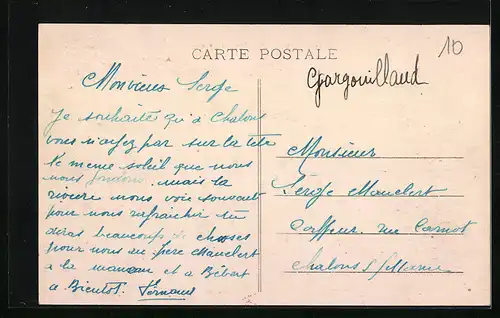 CARTE POSTALE
10
Gargouillaud
Mon vieux Serge
Je souhaite qu'a Chalons
vous n'ayez pas sur la tête
le meme soleil que nous
nous fondons, mais la
riviere nous voie souvent
pour nous rafraichir tu
diras beaucoup de choses
pour nous au Pere Mauclert
a la maman et a Bébert
a Bientot. Fernand
Monsieur
Serge Mauclert
Coiffeur rue Carnot
Chalons s/ Marne